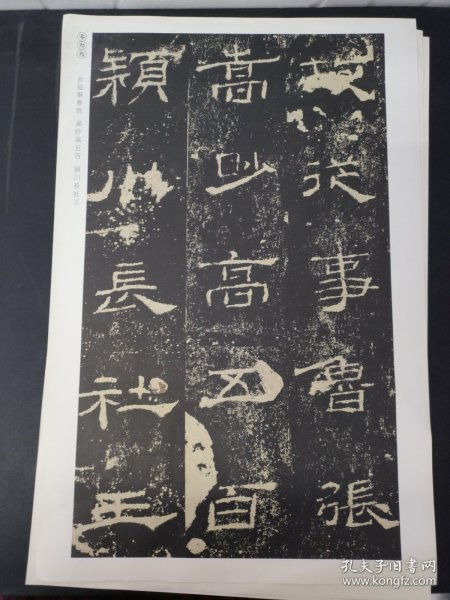 故從事魯張
嵩眇高五百
穎川長社王
故從事魯張 嵩眇高五百 潁川長社王
孔夫子旧书网
www.kongfz.com